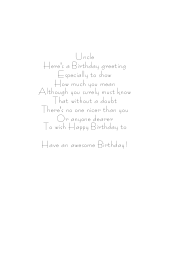 Uncle
Here's a Birthday greeting
Especially to show
How much you mean
Although you surely must know
That without a doubt
There's no one nicer than you
Or anyone dearer
To wish Happy Birthday to
Have an awesome Birthday!